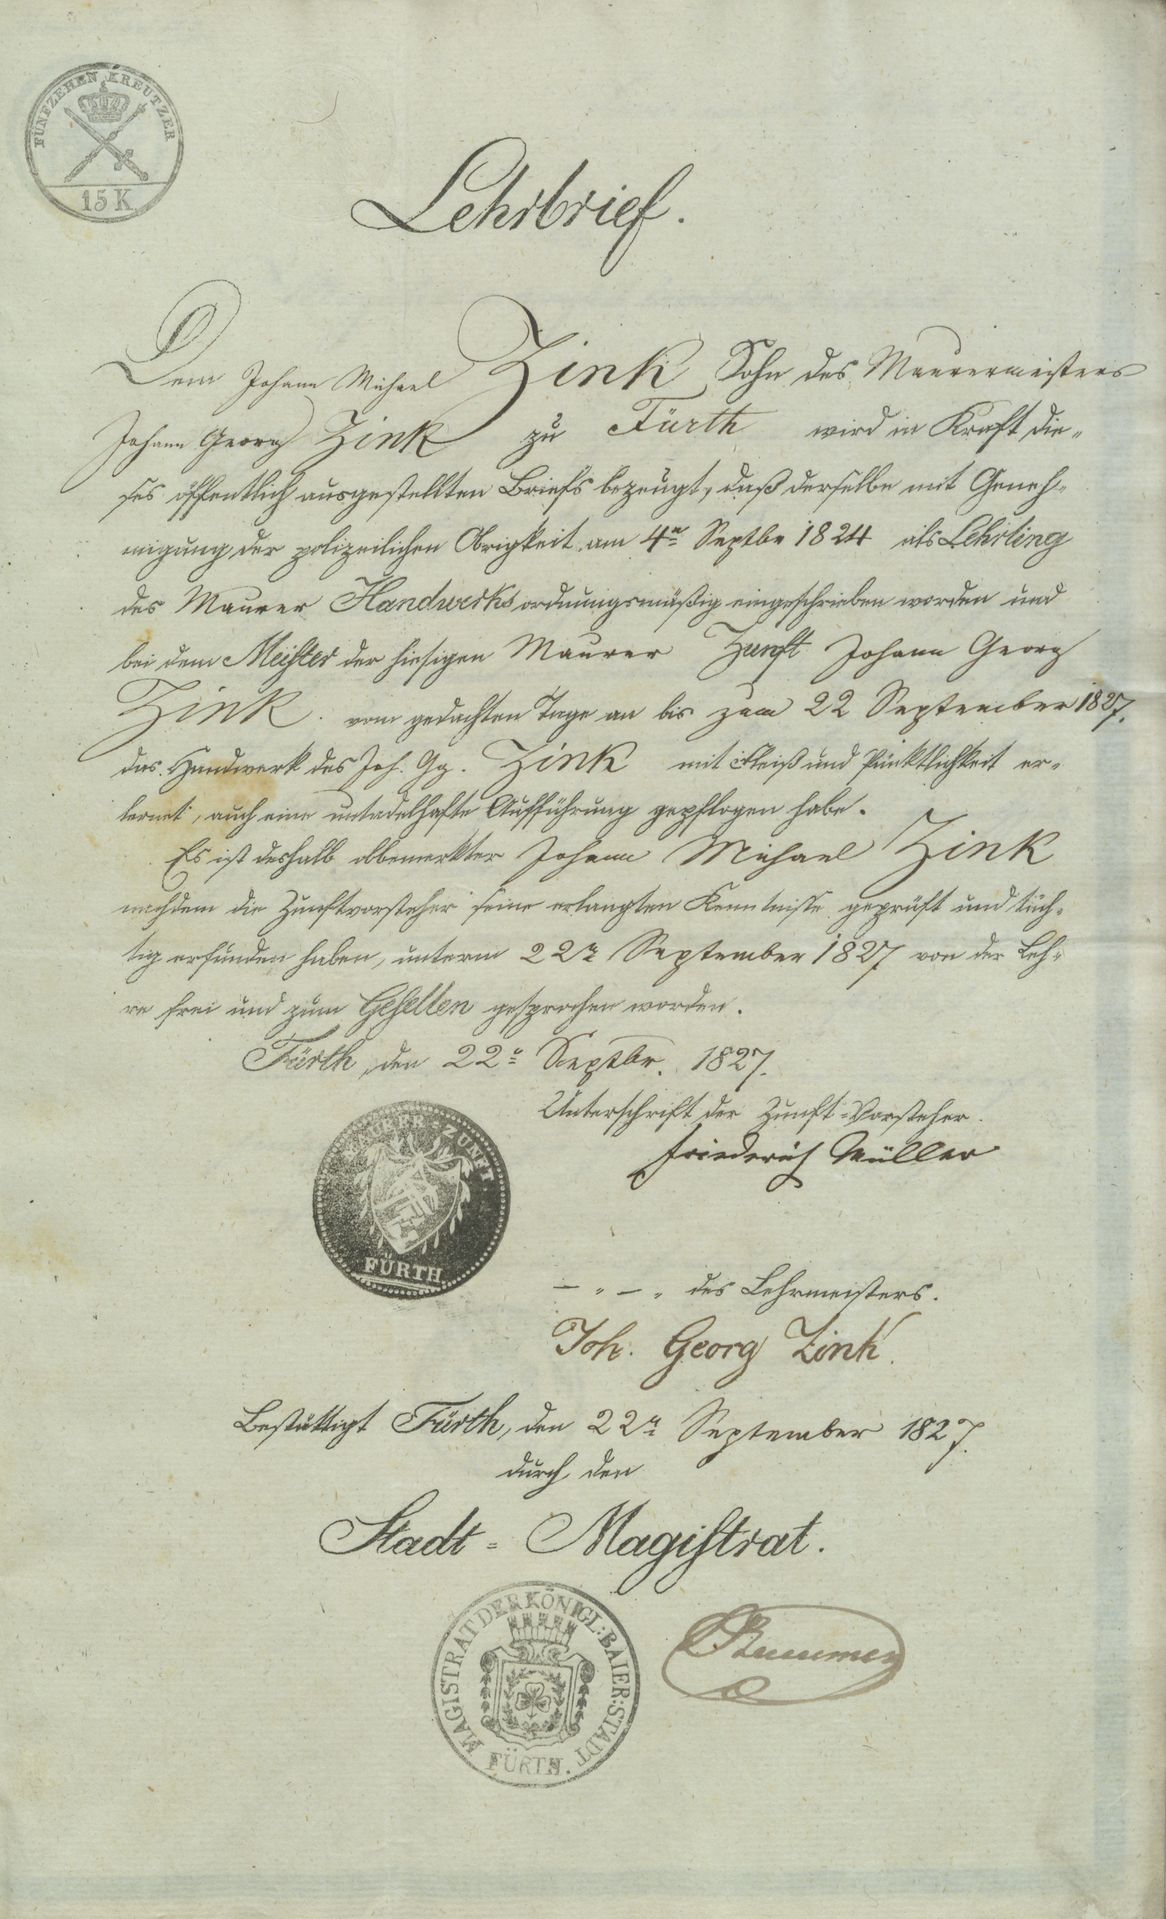 FÜNFZEHEN KREUTZER
15 K
Lehrbrief.
Dem Johann Michael Zink Sohn des Maurermeisters
Johann Georg Zink zu Fürth wird in Kraft die-
ses öffentlich ausgestellten Briefs bezeugt, daß derselbe mit Geneh-
migung der polizeilichen Obrigkeit am 4n Septbr 1824 als Lehrling
des Maurer Handwerks ordnungsmäßig eingeschrieben worden und
bei dem Meister der hiesigen Maurer Zunft Johann Georg
Zink. vom gedachten Tage an bis zum 22 September 1827.
das Handwerk des Joh. Gg. Zink mit Fleiß und Pünktlichkeit er-
lernet, auch eine untadelhafte Aufführung gepflogen habe.
Es ist deshalb obbemerkter Johann Michael Zink
nachdem die Zunftvorsteher seine erlangten Kenntnisse geprüft und tüch-
tig erfunden haben, unterm 22n September 1827 von der Leh-
re frei und zum Gesellen gesprochen worden.
Fürth, den 22n Septbr. 1827.
Unterschrift der Zunft-Vorsteher.
Friederich Müller
ZUNFT
FÜRTH
— „ — „ des Lehrmeisters.
Joh. Georg Zink.
Bestättigt Fürth, den 22n September 1827.
durch den
Stadt-Magistrat.
MAGISTRAT DER KÖNIGL: BAIER: STADT
FÜRTH.